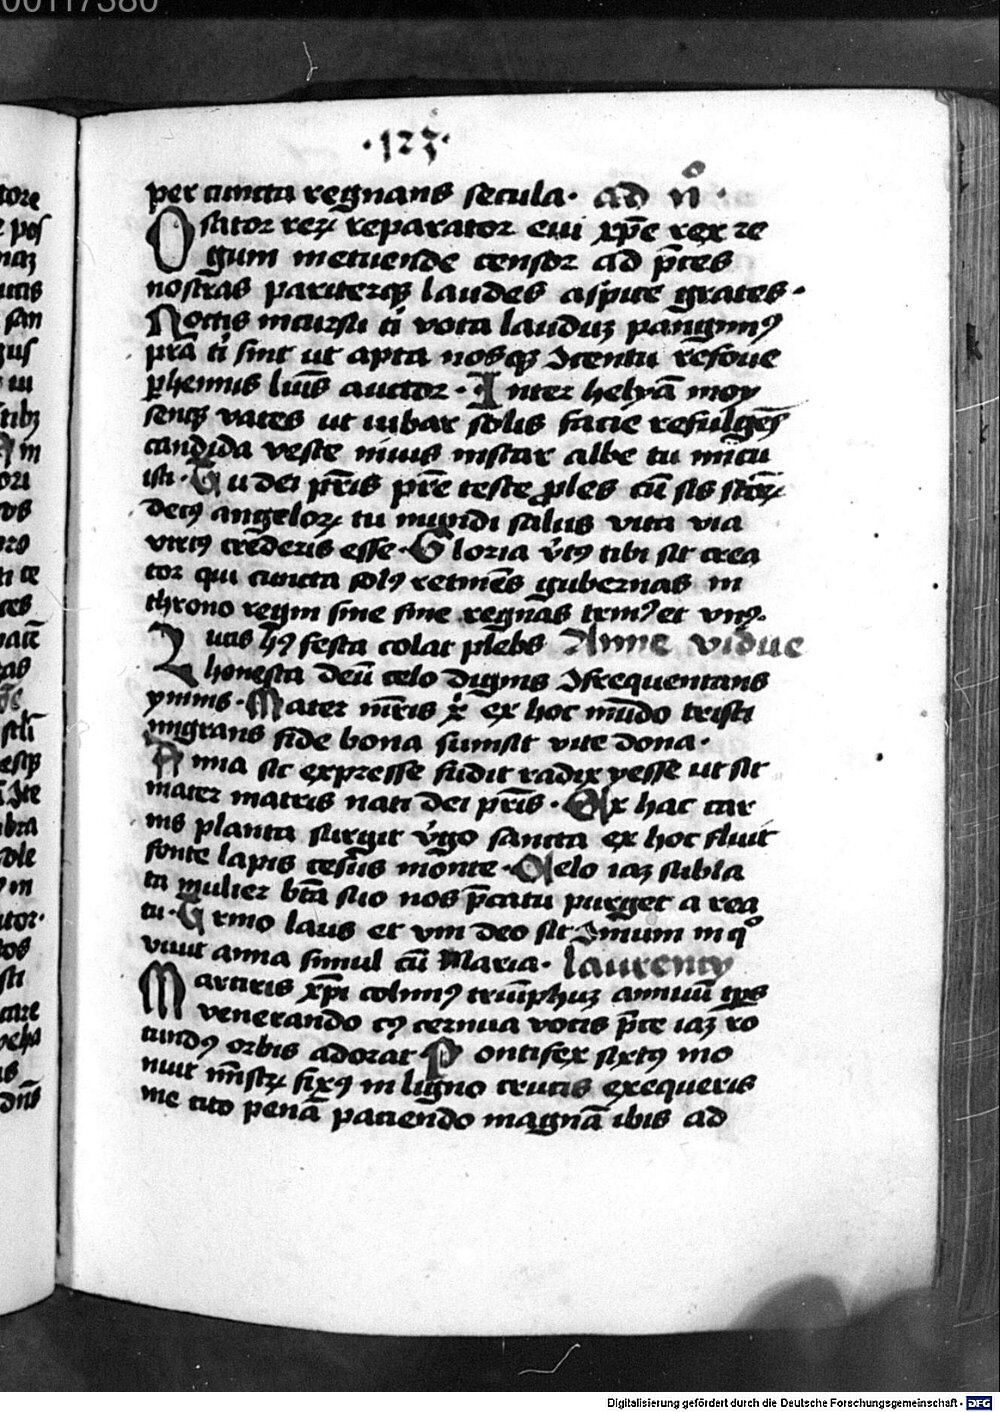 00117380
·123·
per cuncta regnans secula· ad nͦ·
O sator reꝝ reparator eui xp̄e rex re
gum metuende censor ad p̄ces
nostras pariterqꝫ laudes aspice grates·
Noctis incursu ti vota lauduꝫ pangimꝰ
p̄ra ti sint ut apta nosqꝫ Icentu refoue
ꝑhennis luīs auctor· Inter helyā moy
senqꝫ vates ut iubar solis facie refulgēs
candida veste niuis instar albe tu micu
isti· Tu dei pr̄is pr̄e teste ꝓles cū sis sc̄oꝝ
decꝰ angeloꝝ tu mundi salus vita via
virtꝰ crēderis esse· Gloria v̄tꝰ tibi sit crea
tor qui cuncta solꝰ retinēs gubernas in
throno regni sine fine regnās trinꝰ et vnꝰ·
huiꝰ festa colat plebs Anne vidue
honesta deū celo dignis Ifrequentans
ymnis· Mater mr̄is x ex hoc mūdo tristi
migrans fide bona sumsit vite dona·
Anna sic expresse fudit radix yesse ut sit
mater matris nati dei pr̄is· Ex hac car
nis planta surgit v̄go sancta ex hoc fluit
fonte lapis cesus mōnte· Celo iaꝫ subla
ta mulier bt̄a suo nos p̄catu purget a rea
tu· Trino laus et vni deo sit Imum in qͦ
viuit anna simul cū Maria· laurenty
Martiris xp̄i colimꝰ triūphuꝫ annuū tp̄s
venerando cꝰ cernua votis p̄ce iaꝫ ro
tundꝰ orbis adorat Pontifex sixtꝰ mo
nuit mīstꝝ fixꝰ in ligno crucis exequeris
me cito penā paciendo magnā ibis ad
Digitalisierung gefördert durch die Deutsche Forschungsgemeinschaft - DFG